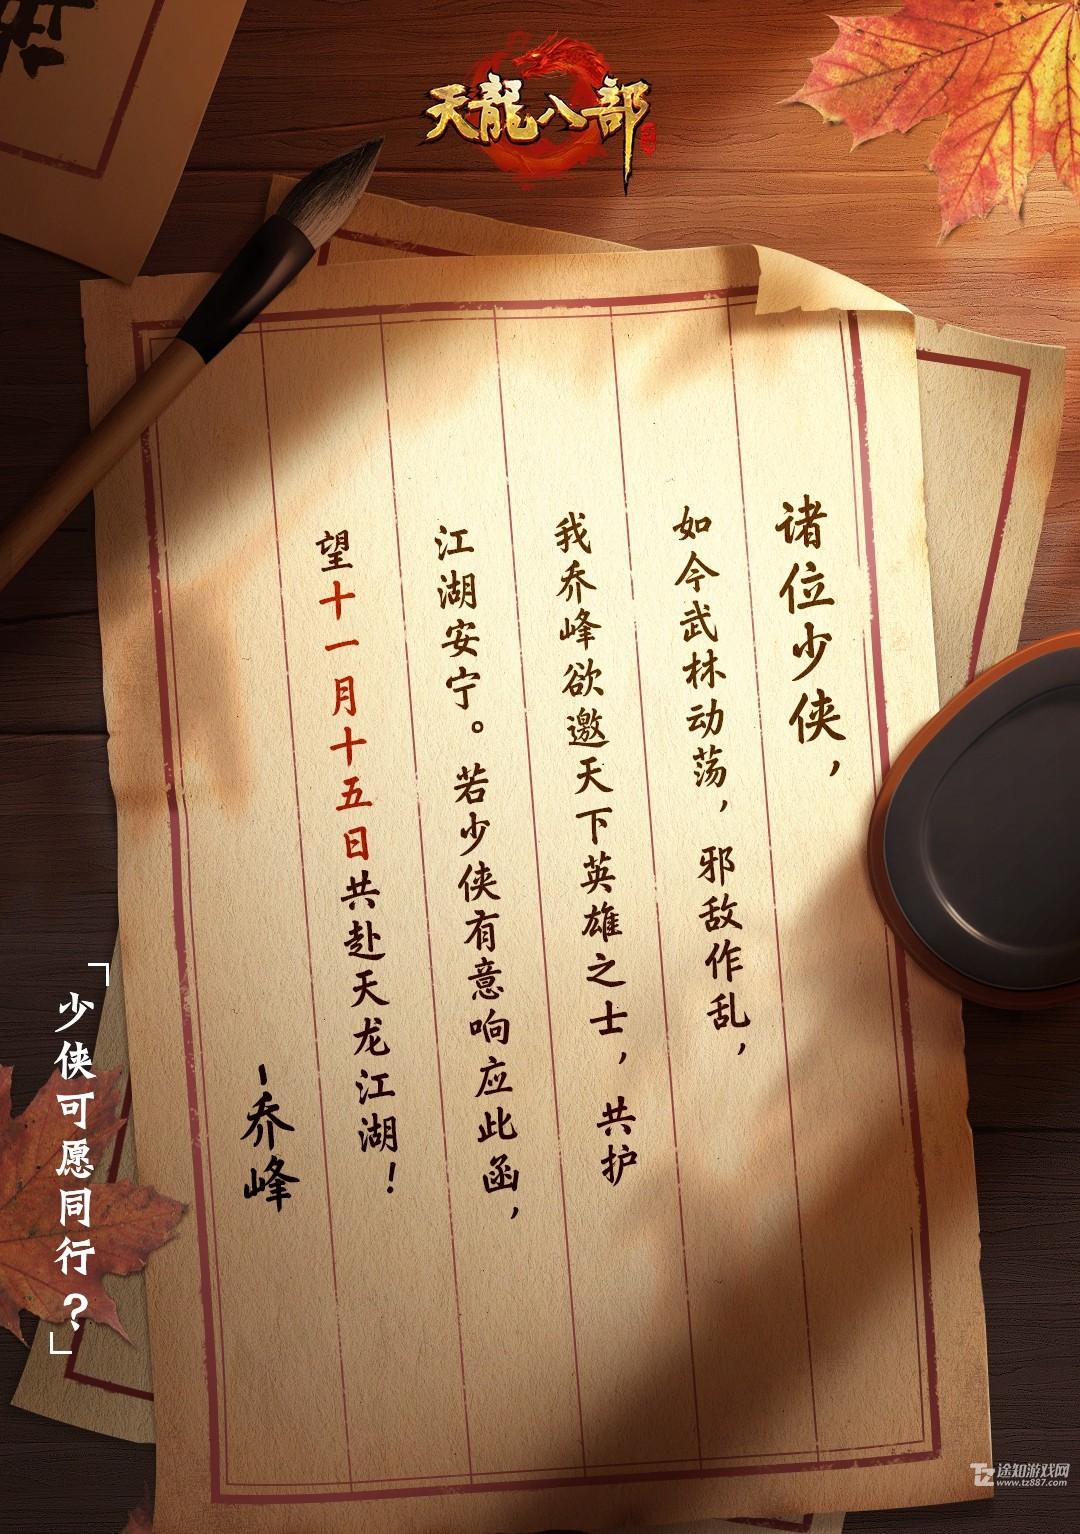 天龍八部
诸位少侠，
如今武林动荡，邪敌作乱，
我乔峰欲邀天下英雄之士，共护
江湖安宁。若少侠有意响应此函，
望十一月十五日共赴天龙江湖！
-乔峰
「少侠可愿同行？」
TZ 途知游戏网
www.tz887.com